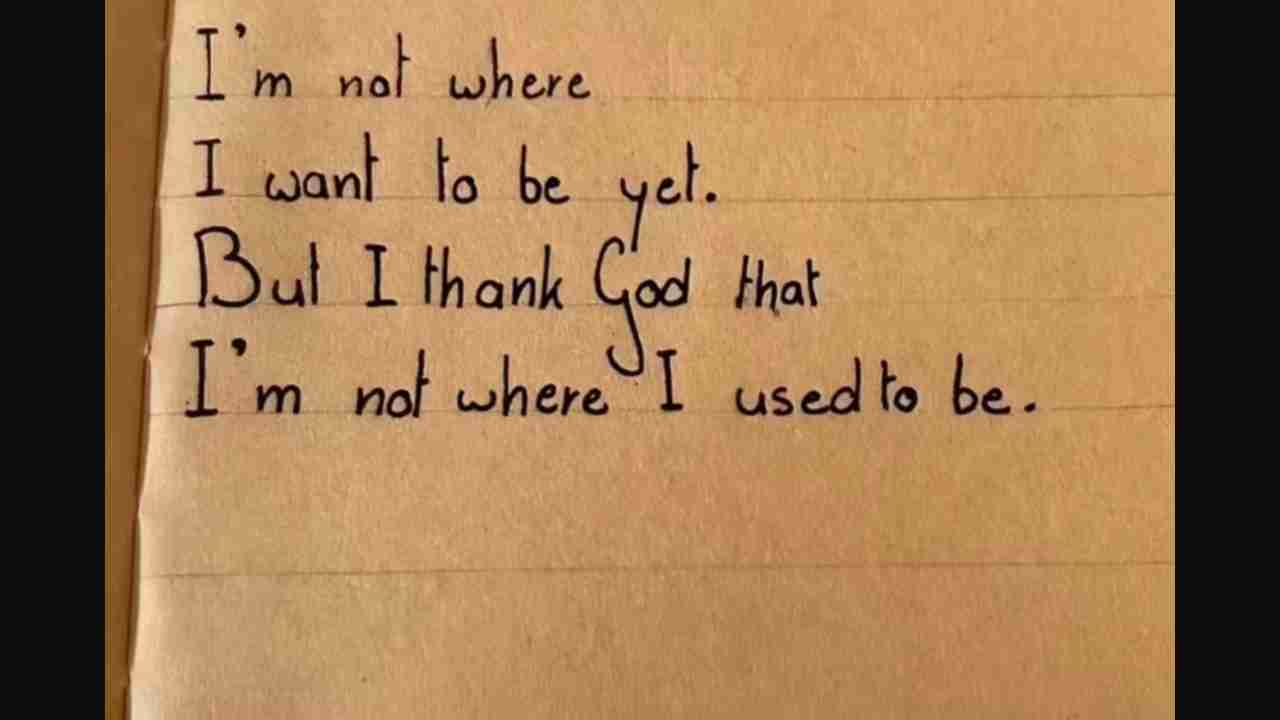 I'm not where
I want to be yet.
But I thank God that
I'm not where I used to be.